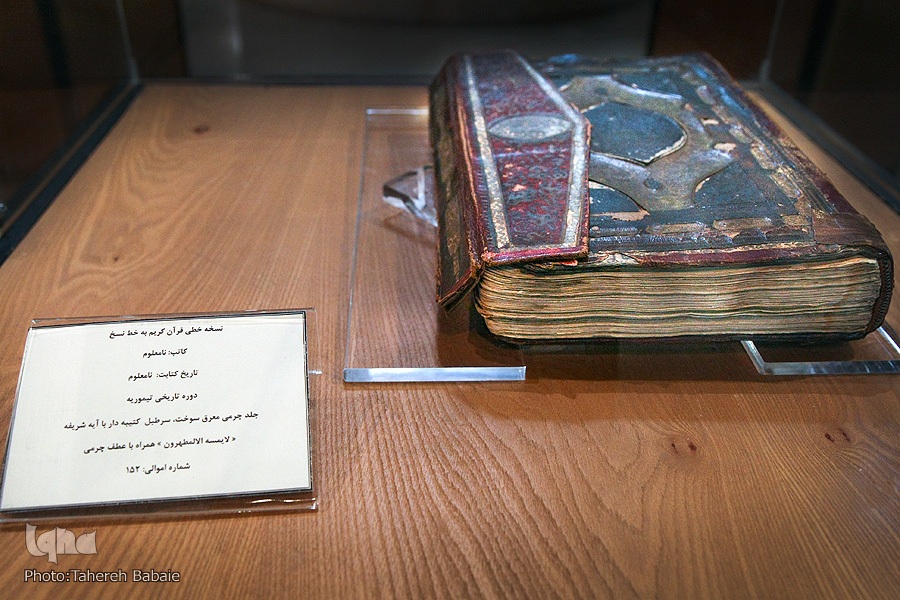 نسخه خطی قرآن کریم به خط نسخ
کاتب: نامعلوم
تاریخ کتابت: نامعلوم
دوره تاریخی تیموریه
جلد چرمی معرق سوخت، سرطبل کتیبه دار با آیه شریفه
« لایمسه الالمطهرون » همراه با عطف چرمی
شماره اموالی: ۱۵۲
iqna
Photo:Tahereh Babaie